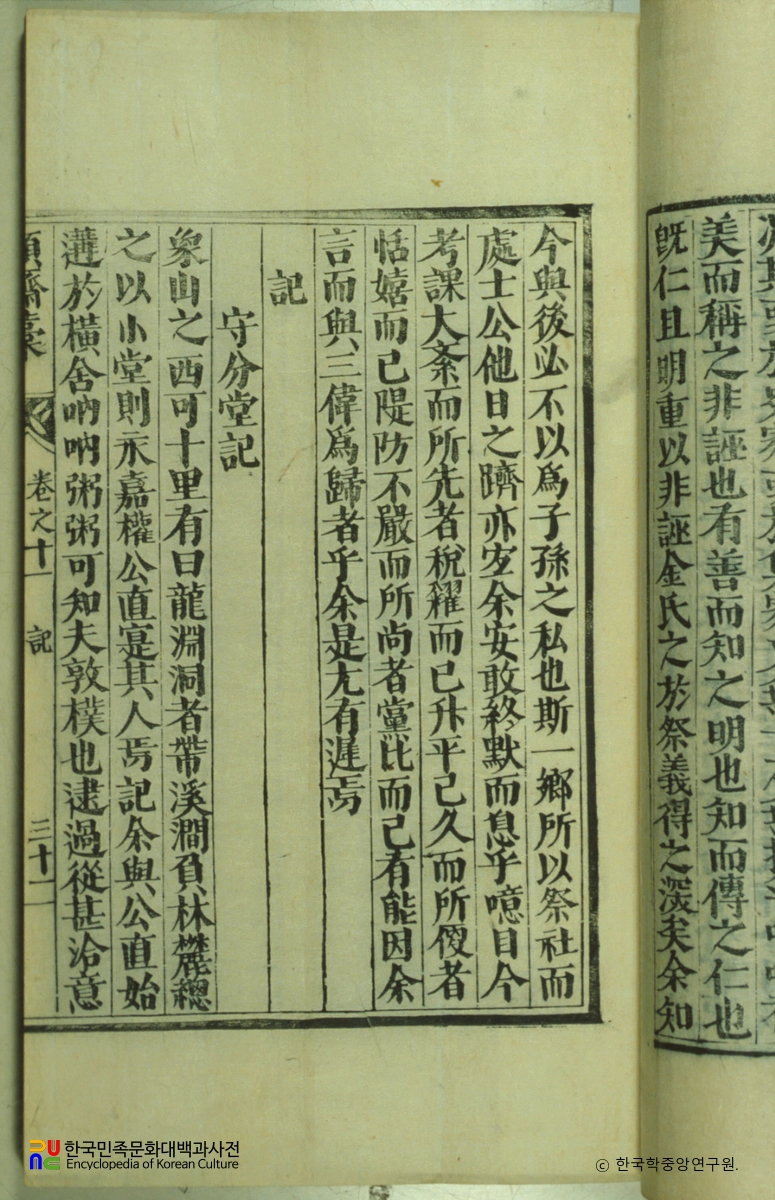 美而稱之非誣也有善而知之明也知而傳之仁也
旣仁且明重以非誣金氏之於祭義得之深矣余知
今與後必不以爲子孫之私也斯一鄉所以祭社而
處士公他日之躋亦宜余安敢終默而息乎噫目今
考課大紊而所先者稅糴而已升平已久而所傁者
恬嬉而已隄防不嚴而所尚者黨比而已有能因余
言而與三偉爲歸者乎余是尤有遲焉
記
守分堂記
象山之西可十里有曰龍淵洞者帶溪澗負林麓總
之以小堂則永嘉權公直寔其人焉記余與公直始
遘於橫舍吶吶粥粥可知夫敦樸也逮過從甚洽意
卷之十一 記 三十二
한국민족문화대백과사전
Encyclopedia of Korean Culture
© 한국학중앙연구원.